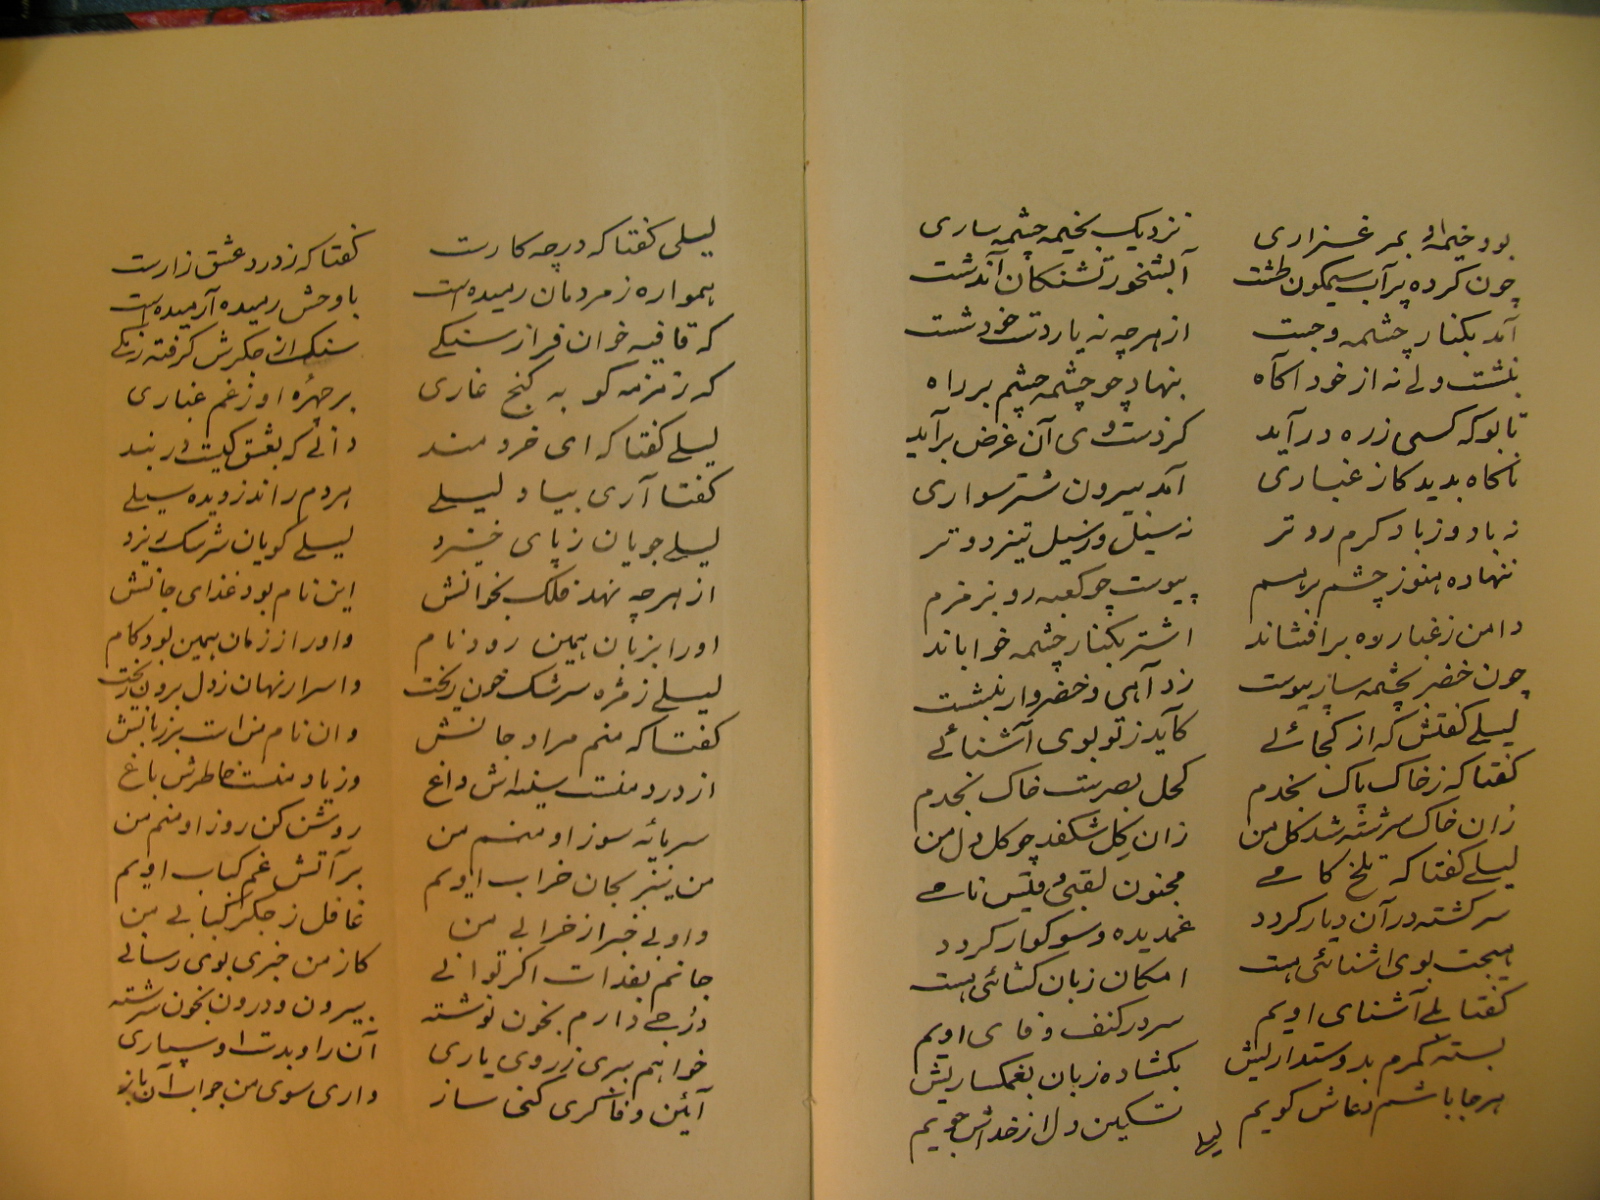 بود خیمهٔ او بمرغزاری نزدیک بخیمه چشمه ساری
چون کرده پرآب سیمکون طشت آبشخور تشنکان آندشت
آمد بکنار چشمه و جست از هرچه نه یار دست خود شست
بنشست ولی نه از خود آکاه بنهاد چو چشمه چشم بر راه
تا بوکه کسی ز ره درآید کز دست وی آن غرض برآید
ناکاه بدید کاز غباری آمد بیرون شترسواری
نه باد و ز باد کرم روتر نه سیل و ز سیل تیز دوتر
ننهاده هنوز چشم برهم پیوست چو کعبه رو بزمزم
دامن ز غبار راه برافشاند اشتر بکنار چشمه خواباند
چون خضر بچشمه سار پیوست زد آهی و خضروار بنشست
لیلی کفتش که از کجائی کآید ز تو بوی آشنائی
کفتا که ز خاک پاک نجدم کحل بصرست خاک نجدم
زان خاک سرشته شد کل من زان کِل شکفد چو کل دل من
لیلی کفتا که تلخ کامی مجنون لقبی و قیس نامی
سرکشته در آن دیار کردد غمدیده و سوکوار کردد
هیچت بوی اشنائی هست امکان زبان کشائی هست
کفتا بلی آشنای اویم سر در کنف وفای اویم
بسته کمرم بدوستداریش بکشاده زبان بغمکساریش
هرجا باشم دعاش کویم تسکین دل از خداش جویم
لیلی
لیلی کفتا که در چه کارست کفتا که ز درد عشق زارست
همواره ز مردمان رمیده است با وحش رمیده آرمیده است
که قافیه خوان فراز سنکی سنک از جکرش کرفته رنکی
که زمزمه کو به کنج غاری بر چهرهٔ او ز غم غباری
لیلی کفتا که ای خردمند دانی که بعشق کیست در بند
کفتا آری بیاد لیلی هردم راند ز دیده سیلی
لیلی جویان ز پای خیزد لیلی کویان سرشک ریزد
از هرچه نهد فلک بخوانش این نام بود غذای جانش
او را بزبان همین رود نام و او را ز زمان همین بود کام
لیلی ز مژه سرشک خون ریخت و اسرار نهان ز دل برون ریخت
کفتا که منم مراد جانش وان نام من است بر زبانش
از درد منست سینه اش داغ وز یاد منست خاطرش باغ
سرمایه سوز او منم من روشن کن روز او منم من
من نیز بجان خراب اویم بر آتش غم کباب اویم
و او بی خبر از خرابی من غافل ز جکر کبابی من
جانم بفدات اکر توانی کاز من خبری بوی رسانی
دُرجی دارم بخون نوشته بیرون و درون بخون سرشته
خواهم ببری ز روی یاری آن را و بدست او سپاری
آئین وفاکری کنی ساز و اری سوی من جواب آن باز